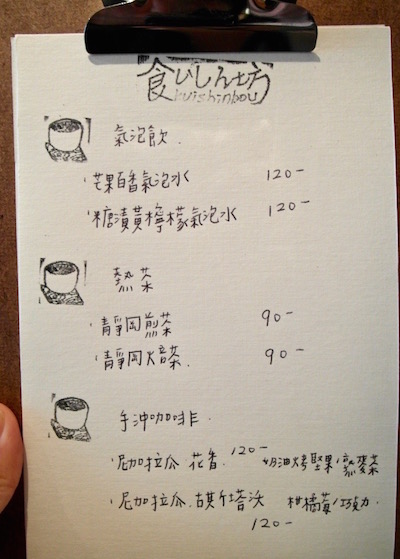 食いしん坊
kuishinbou
氣泡飲.
芒果百香氣泡水 120-
糖漬黃檸檬氣泡水 120-
熱茶
靜岡煎茶 90-
靜岡焙茶. 90-
手沖咖啡.
尼加拉瓜 花香. 120- 奶油烤堅果/蕎麥茶
尼加拉瓜.古斯塔沃 柑橘莓/巧克力
120-